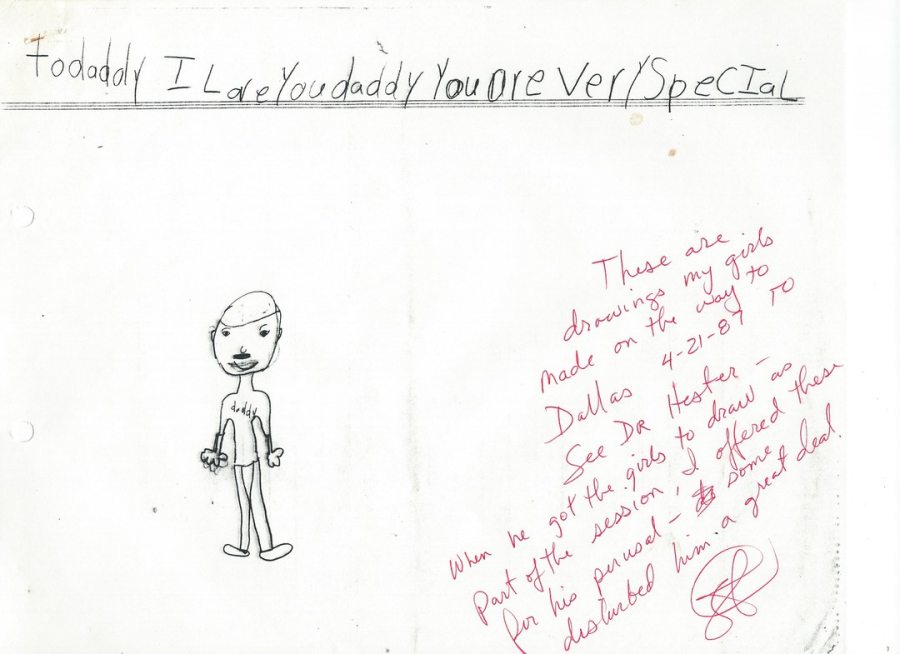 todaddy I Love You daddy You are Very SpecIaL
daddy
These are
drawings my girls
made on the way to
Dallas 4-21-87 TO
See DR Hester –
When he got the girls to draw as
part of the session, I offered these
for his perusal – some
disturbed him a great deal.